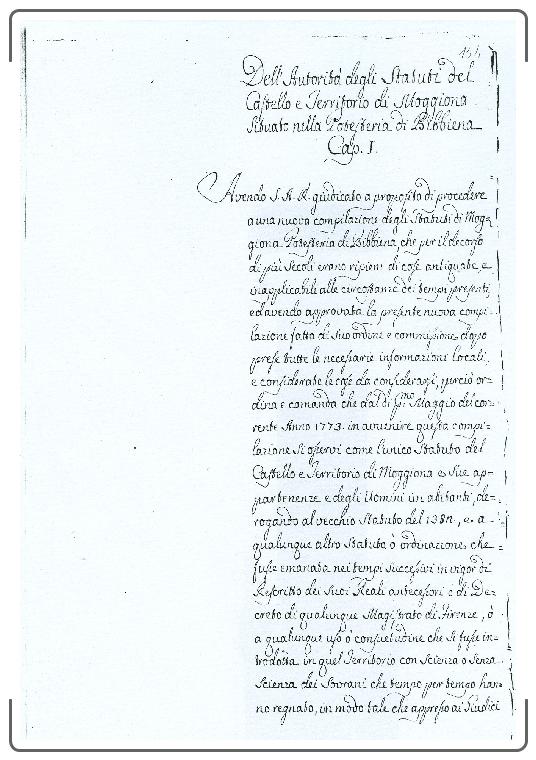 Dell'Autorità degli Statuti del
Castello e Territorio di Moggiona
Situato nella Potesteria di Bibbiena
Cap. I.
Avendo S. A. R. giudicato a proposito di procedere
a una nuova compilazione degli Statuti di Mog=
giona Potesteria di Bibbiena, che per il decorso
di più Secoli erano ripieni di cose antiquate, e
inapplicabili alle circostanze dei tempi presenti,
ed avendo approvata la presente nuova compi=
lazione fatta di Suo ordine e commissione, dopo
prese tutte le necessarie informazioni locali,
e considerate le cose da considerarsi, perciò or=
dina e comanda che dal dì p.mo Maggio del cor=
rente Anno 1773. in avvenire questa compi=
lazione Si osservi come l'unico Statuto del
Castello e Territorio di Moggiona e Sue ap=
partenenze e degli Uomini in abitanti, de=
rogando al vecchio Statuto del e a
qualunque altro Statuto ò ordinazione, che
fusse emanata nei tempi Successivi in vigor di
Rescritto dei Suoi Reali antecessori ò di De=
creto di qualunque Magistrato di Firenze, ò
a qualunque uso ò consuetudine che si fusse in=
trodotta in quel Territorio con Scienza o Senza
Scienza dei Sovrani che tempo per tempo han=
no regnato, in modo tale che appresso ai Giudici